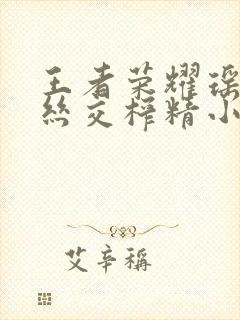 王者荣耀瑶
丝交榨精小
艾辛稱